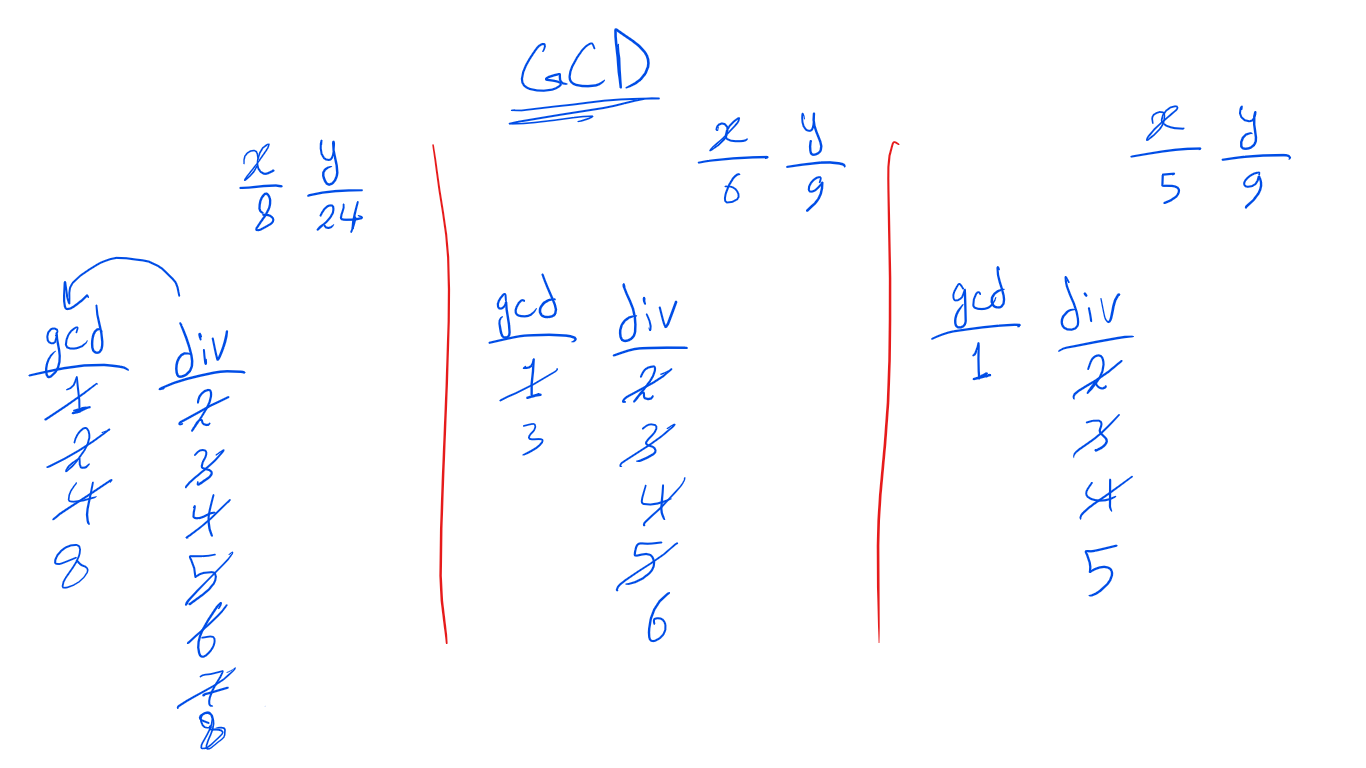 GCD
x y
8 24
gcd div
1 2
2 3
4 4
8 5
6
7
8
x y
6 9
gcd div
1 2
3 3
4
5
6
x y
5 9
gcd div
1 2
3
4
5